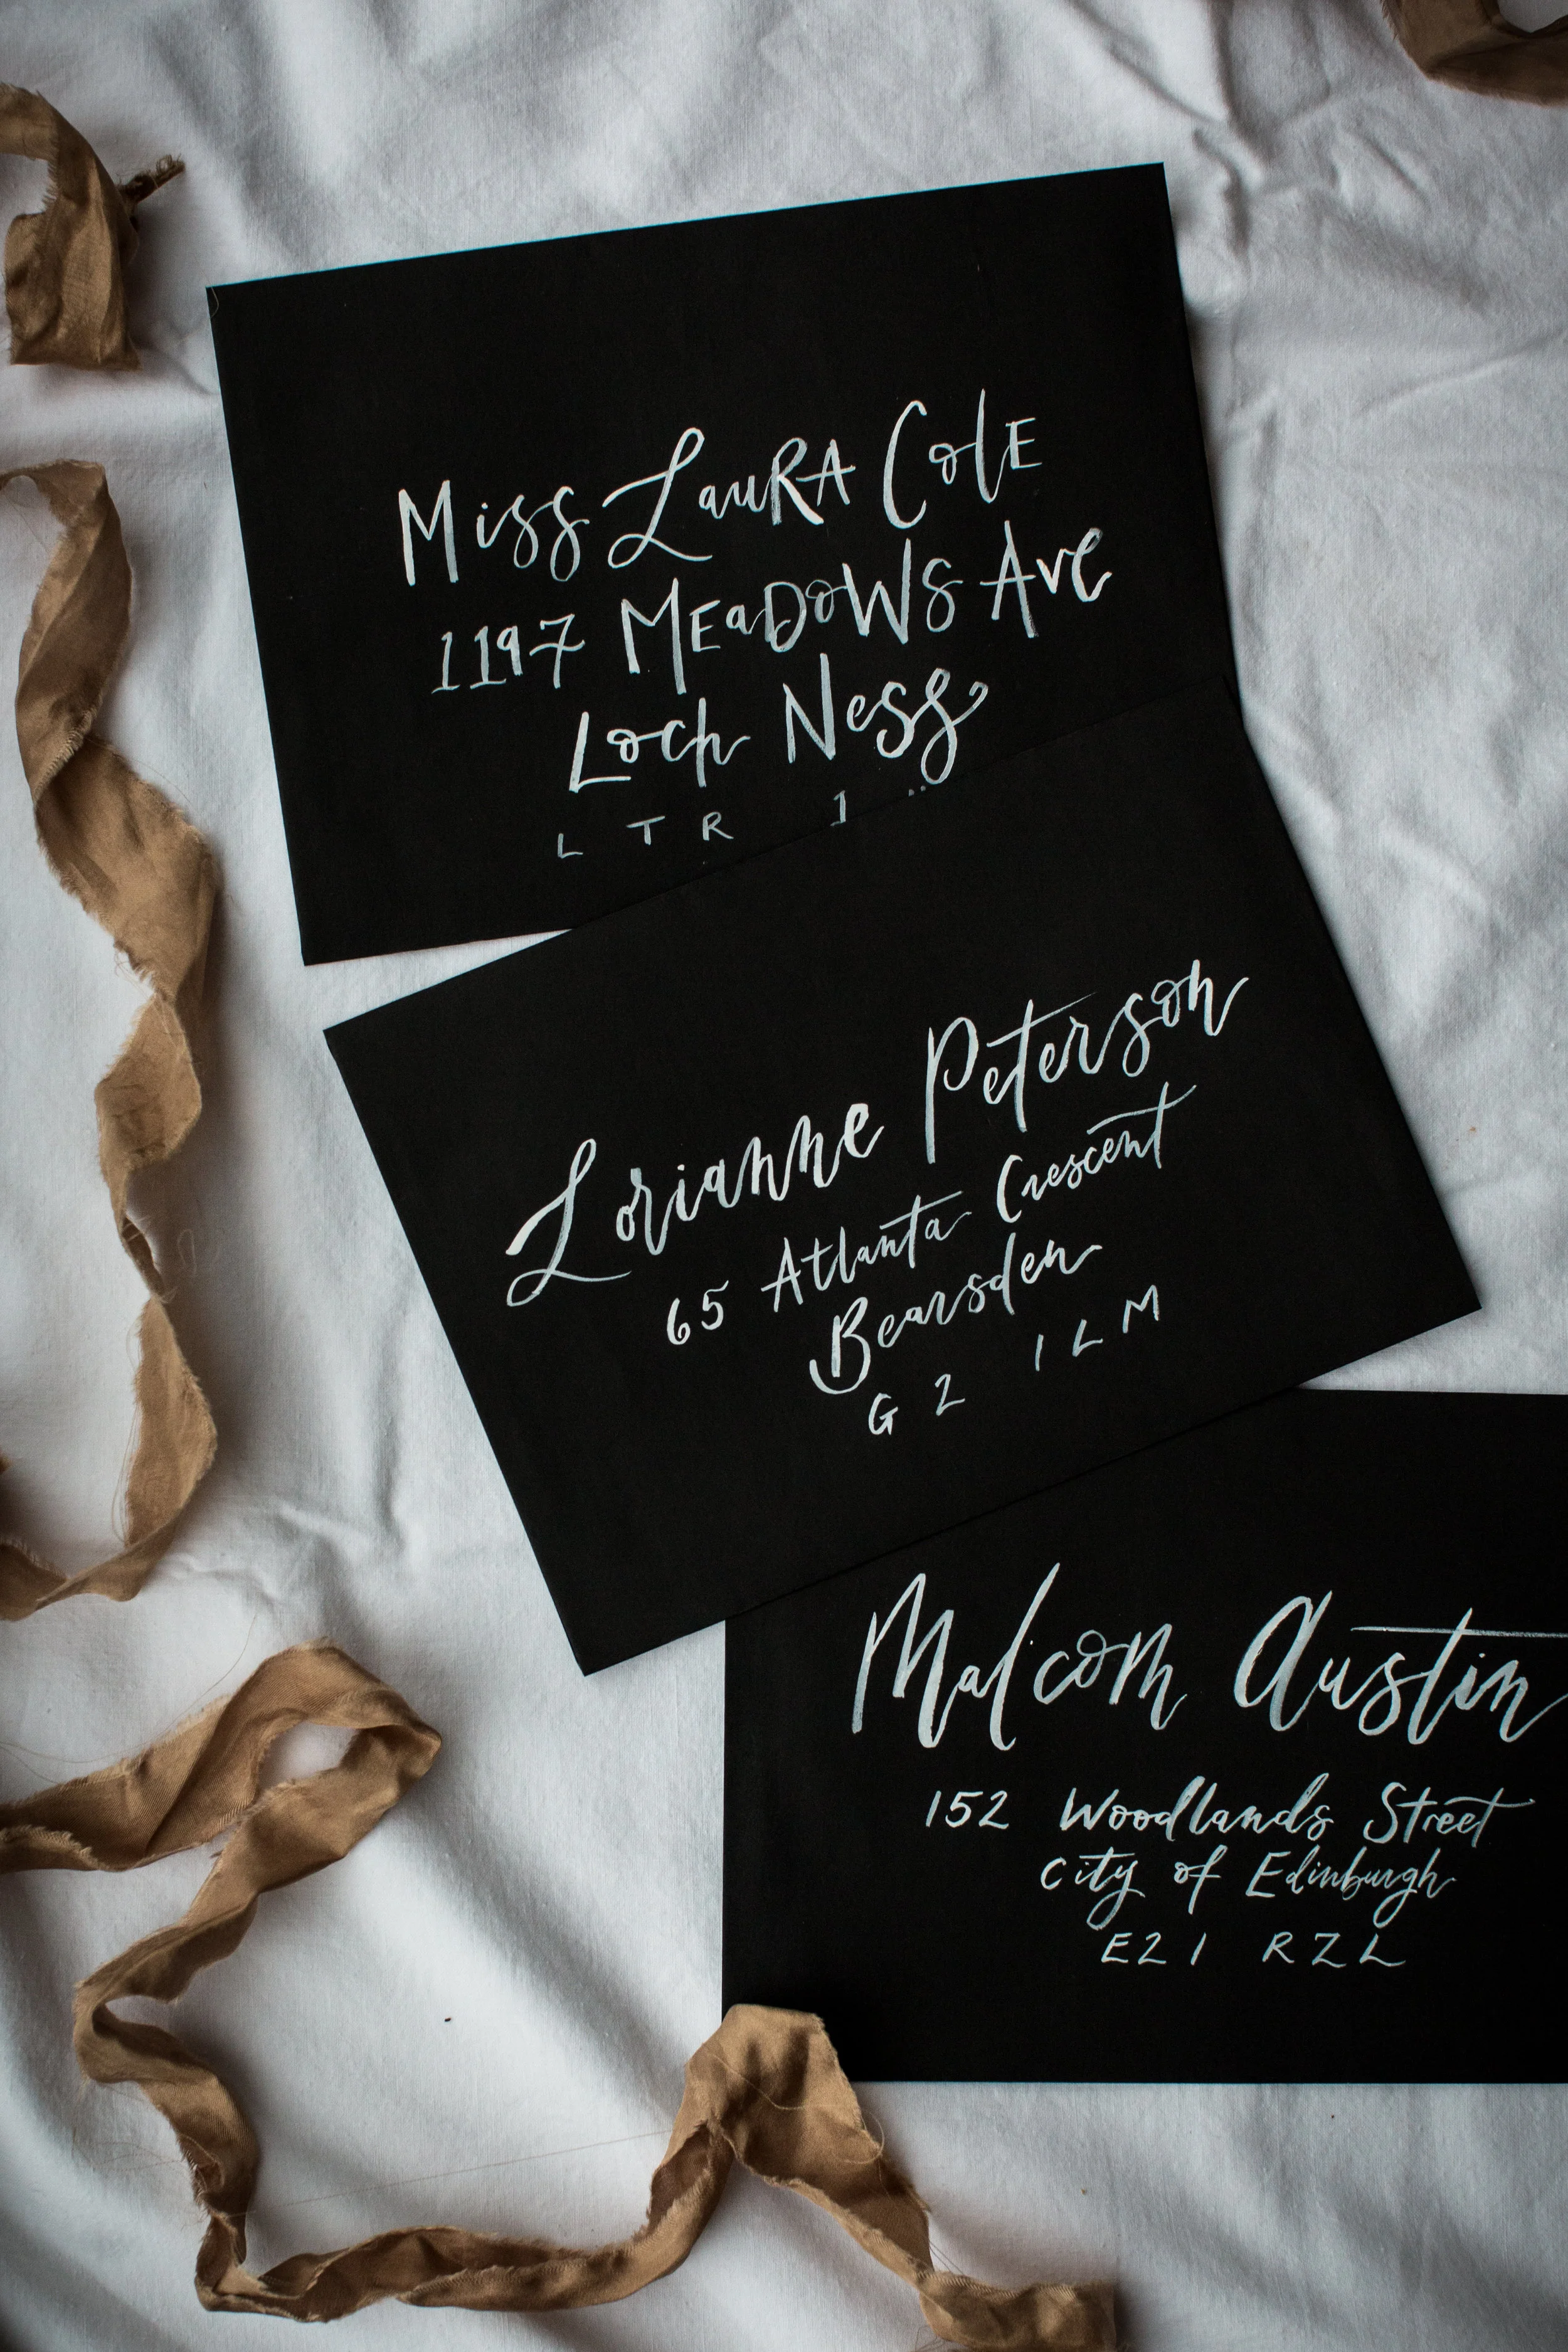 Miss Laura Cole
1197 Meadows Ave
Loch Ness
L T R 1
Lorianne Peterson
65 Atlanta Crescent
Bearsden
G 2 1 L M
Malcom Austin
152 Woodlands Street
City of Edinburgh
E21 RZL